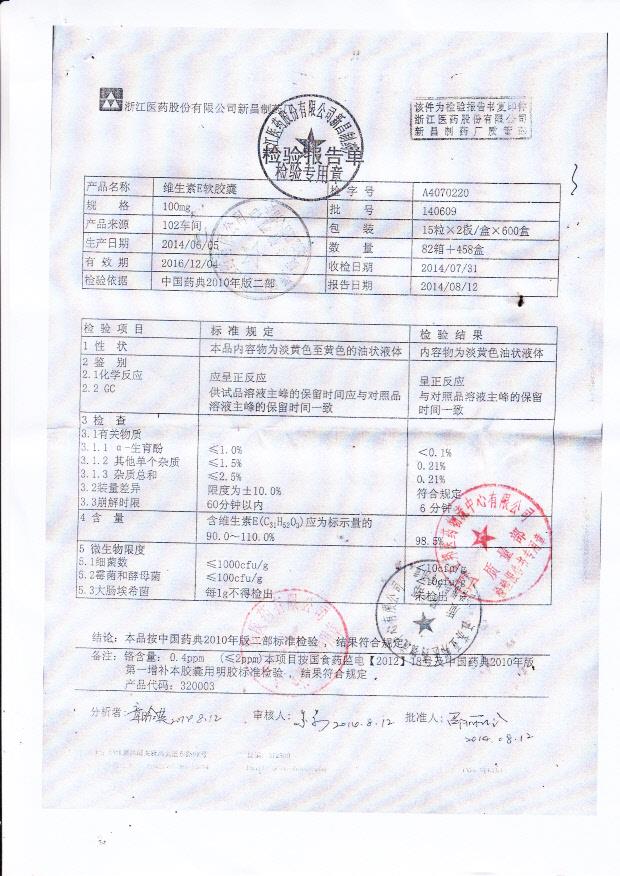 浙江医药股份有限公司新昌制药厂
该件为检验报告书复印件
浙江医药股份有限公司
新昌制药厂质管部
检验报告单
检验专用章
产品名称 维生素E软胶囊 检字号 A4070220
规格 100mg 批号 140609
产品来源 102车间 包装 15粒×2板/盒×600盒
生产日期 2014/06/05 数量 82箱+458盒
有效期 2016/12/04 收检日期 2014/07/31
检验依据 中国药典2010年版二部 报告日期 2014/08/12
检验项目 标准规定 检验结果
1 性状 本品内容物为淡黄色至黄色的油状液体 内容物为淡黄色油状液体
2 鉴别
2.1化学反应 应呈正反应 呈正反应
2.2 GC 供试品溶液主峰的保留时间应与对照品 与对照品溶液主峰的保留
溶液主峰的保留时间一致 时间一致
3 检查
3.1有关物质
3.1.1 α-生育酚 ≤1.0% <0.1%
3.1.2 其他单个杂质 ≤1.5% 0.21%
3.1.3 杂质总和 ≤2.5% 0.21%
3.2装量差异 限度为±10.0% 符合规定
3.3崩解时限 60分钟以内 6分钟
4 含量 含维生素E(C₃₁H₅₂O₃)应为标示量的
90.0~110.0% 98.5%
5 微生物限度
5.1细菌数 ≤1000cfu/g ≤10cfu/g
5.2霉菌和酵母菌 ≤100cfu/g ≤10cfu/g
5.3大肠埃希菌 每1g不得检出 未检出
结论：本品按中国药典2010年版二部标准检验，结果符合规定
备注：铬含量：0.4ppm （≤2ppm）本项目按国食药监电【2012】18号及中国药典2010年版
第一增补本胶囊用明胶标准检验，结果符合规定。
产品代码：320003
分析者： 2014.8.12 审核人： 2014.8.12 批准人：
2014.08.12